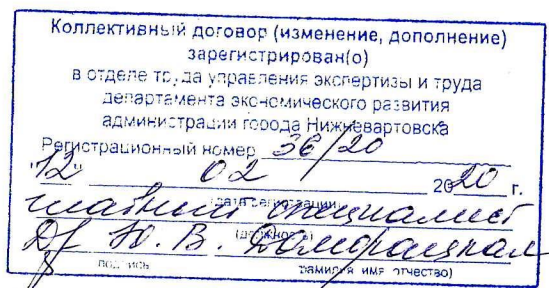 Коллективный договор (изменение, дополнение)
зарегистрирован(о)
в отделе труда управления экспертизы и труда
департамента экономического развития
администрации города Нижневартовска
Регистрационный номер 36/20
"12" 02 2020 г.
(дата регистрации)
главный специалист
(должность)
Ю. В.
подпись фамилия имя отчество)